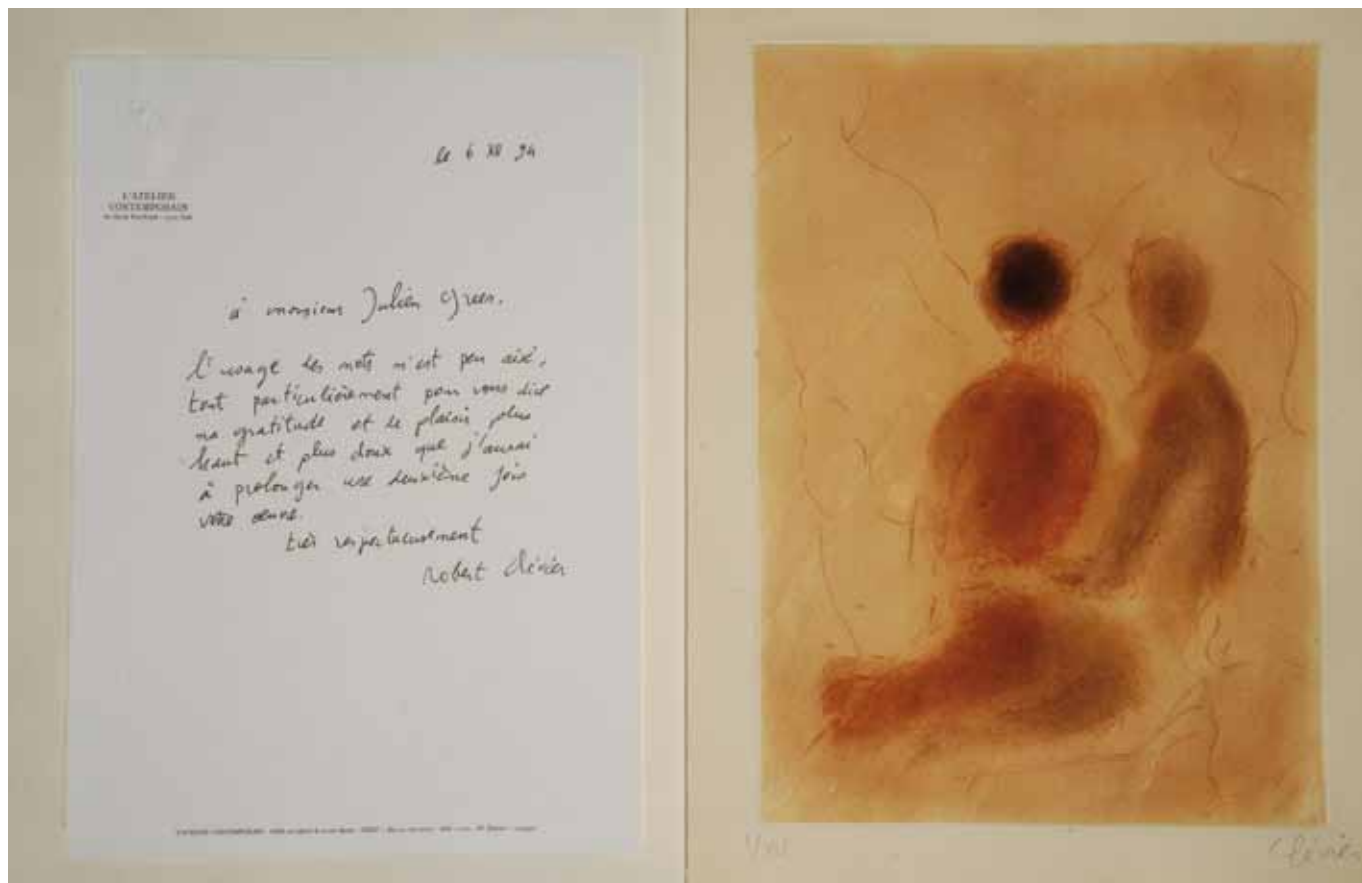 le 6 XII 94
L'ATELIER
CONTEMPORAIN
à monsieur Julien Green.
l'usage des mots n'est peu aisé,
tout particulièrement pour vous dire
ma gratitude et le plaisir plus
haut et plus doux que j'aurai
à prolonger une deuxième fois
votre œuvre.
très respectueusement
Robert Clévier
Clévier